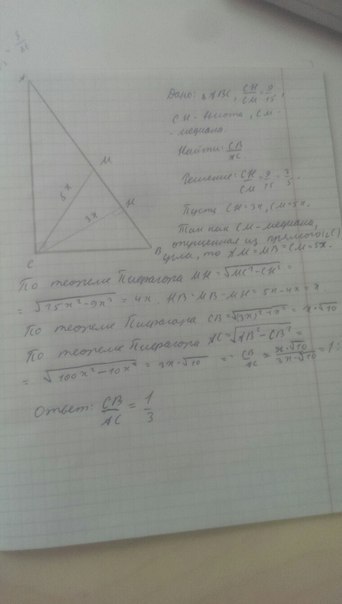 A
M
H
B
C
5x
3x
Дано: △ABC, CH/CM = 9/15,
CH - высота, CM
- медиана
Найти: CB/AC
Решение: CH/CM = 9/15 = 3/5.
Пусть CH = 3x, CM = 5x.
Так как CM - медиана,
опущенная из прямого (∠C)
угла, то AM = MB = CM = 5x.
По теореме Пифагора MH = √MC² - CH² =
= √25x² - 9x² = 4x. HB = MB - MH = 5x - 4x = x
По теореме Пифагора CB = √(3x)² + x² = x·√10
По теореме Пифагора AC = √AB² - CB² =
= √100x² - 10x² = 3x·√10 CB/AC = x·√10/3x·√10 = 1:
Ответ: CB/AC = 1/3